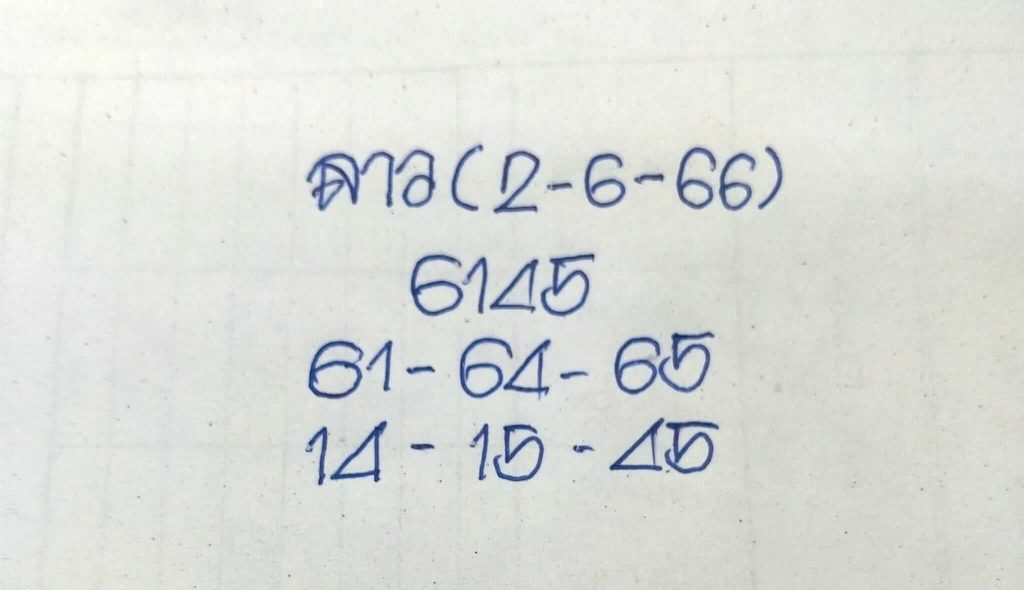 ลาว (2-6-66)
6145
61 - 64 - 65
14 - 15 - 45